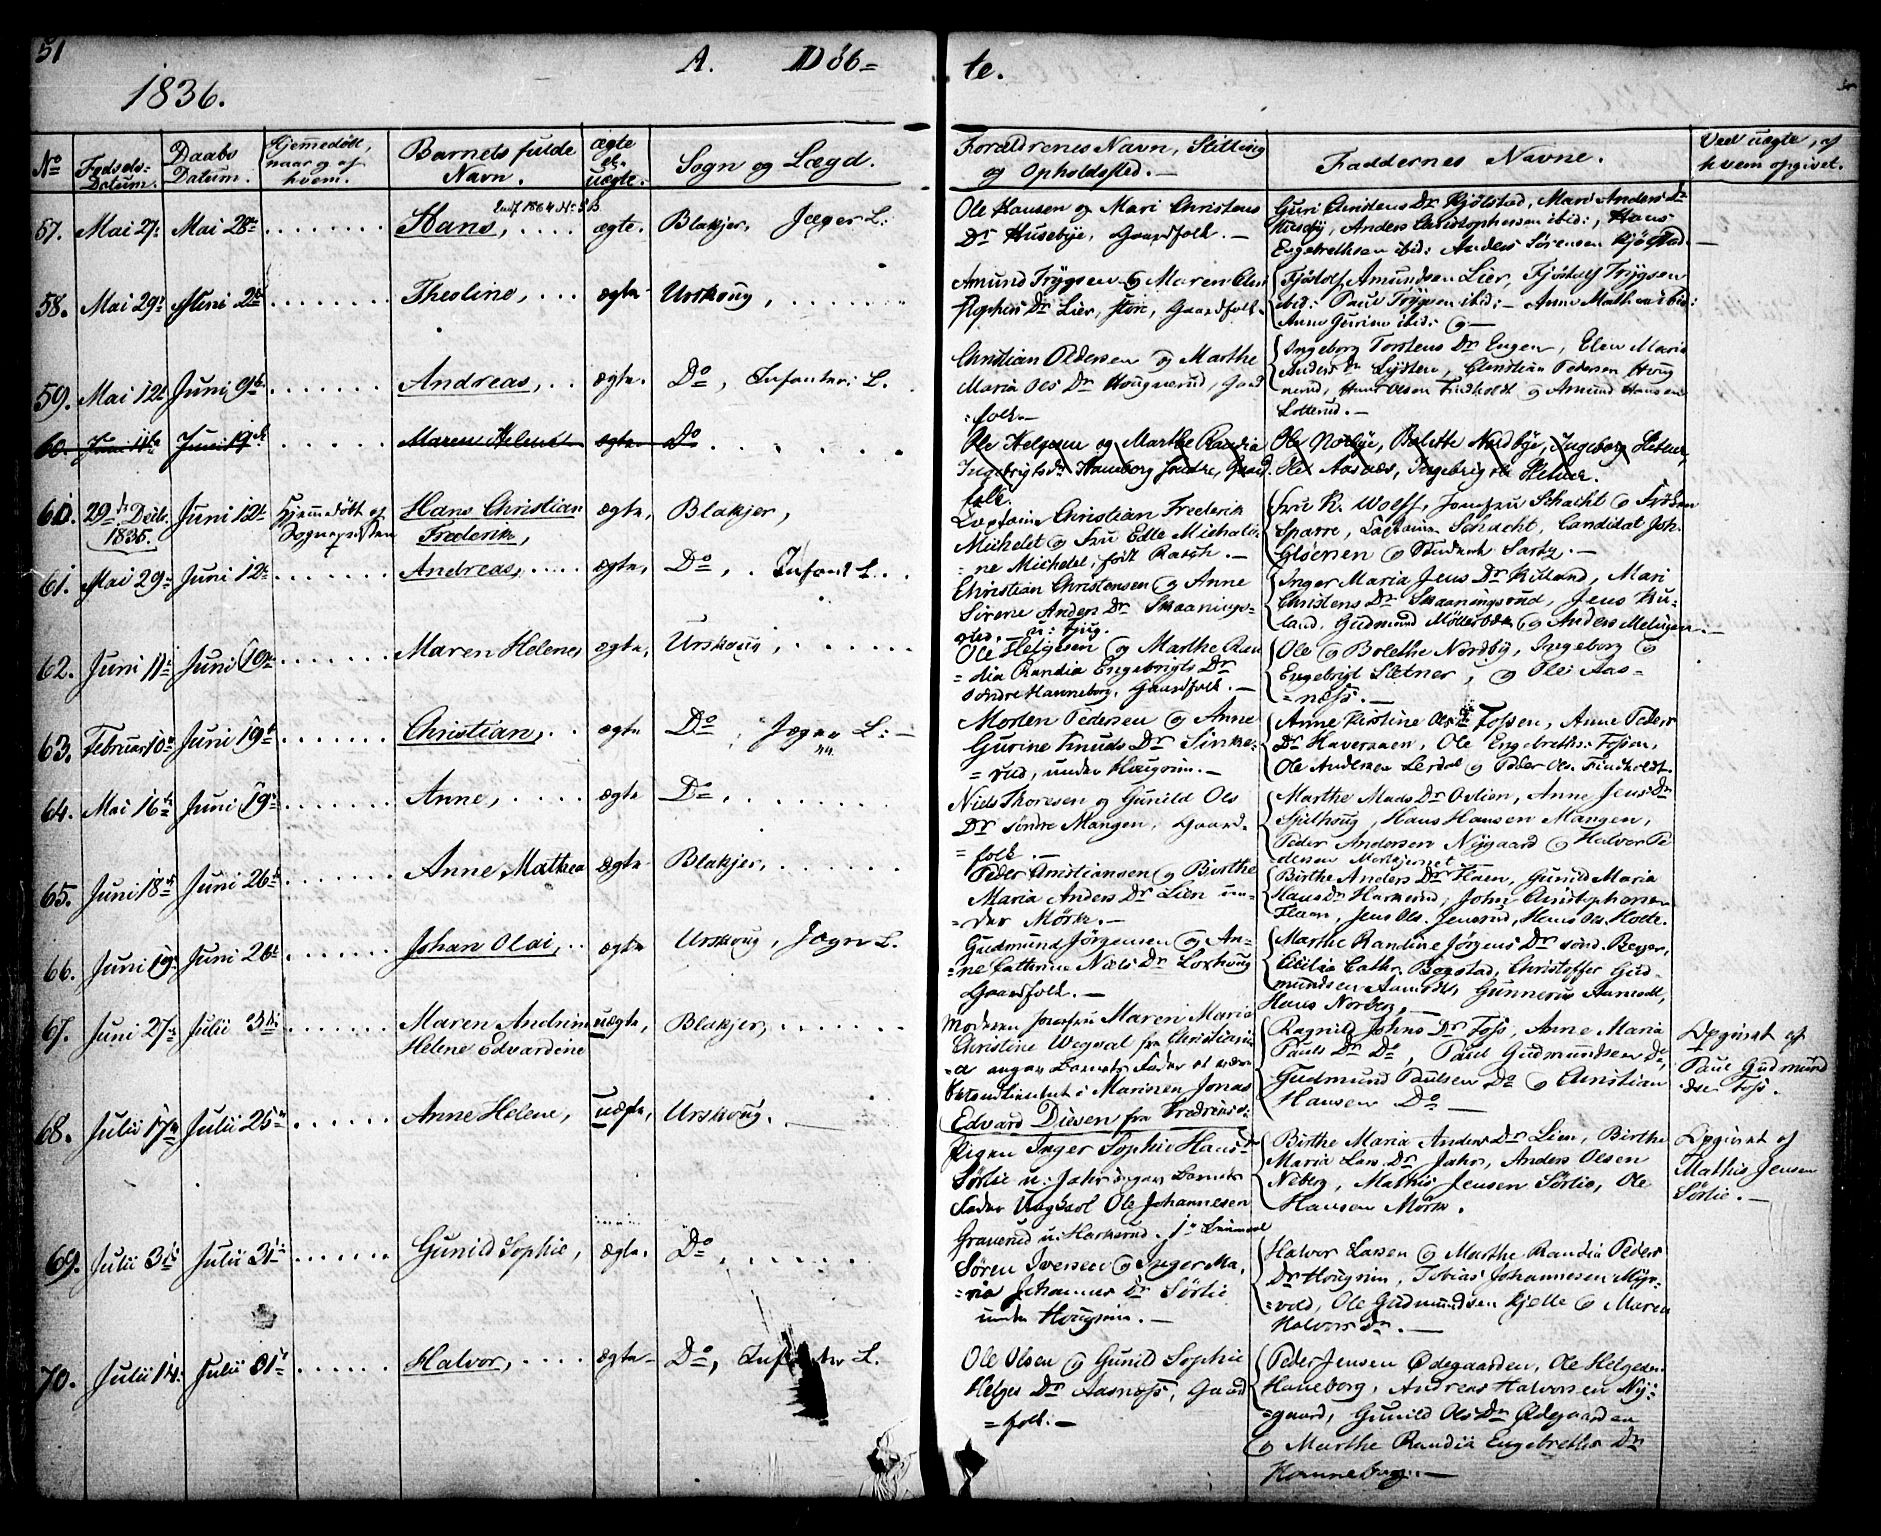 51
A. Døb=
te.
1836.
No
Fødsels-
Datum.
Daabs
Datum.
Hjemmedøbt,
naar og af
hvem.
Barnets fulde
Navn.
ægte
el.
uægte.
Sogn og Lægd.
Forældrenes Navn, Stilling
og Opholdssted. —
Faddernes Navne.
Ved uægte, af
hvem opgivet.
57. Mai 27. Mai 28de Hans, ægte. Blakjer, Jæger L:
Ole Hansen og Mari Christens
Dr Husebye, Gaardfolk. —
Guri Christens Dr Kjølstad, Mari Anders Dr
Huseby, Anders Christophersen ibid:, Hans
Engebrethsen ibid: Anders Sørensen Kjølstad. —
58. Mai 29. Juni 2. Theoline, ægte Urskoug,
Amund Trygsen og Maren
Dr Lier, store, Gaardfolk.
Tjøstolf Amundsen Lier, Tjøstolf Trygsen
ibid: Paul Trygsen ibid: — Anne Mathea ibid:
Anne Gurine ibid: —
59. Mai 12. Juni 9. Andreas, ægte. Do, Infanteri L.
Christian Pedersen og Marthe
Maria Ols Dr Hougnerud, Gaard
=folk. —
Ingeborg Torstens Dr Engen, Elen Maria
Anders Dr, Christian Pedersen Houg
nerud, Hans Olsen Findholdt og Amund Hansen
Lotterud. —
60. Juni 11. Juni 19. Maren Helene ægte Do
Ole Helgesen og Marthe Randia
Ingebrigts Dr Hanneborg søndre, Gaard
folk.
Ole Nordbye, Bolette Nordbye, Ingeborg Sletner,
Ole Aasnæs, Ingebrigt Sletner.
60. 29de Decb.
1835.
Juni 12. Hjemmedøbt af
Sognepræsten
Hans Christian
Frederik,
ægte, Blakjer,
Captain Christian Frederik
Michelet og Fru Edle Michali=
=ne Michelet, født Rasch. —
Fru R. Wolff, Jomfru Schacht og Frøken
Sparre, Captain Schacht, Candidat Joh.
Gløersen og Student Sarby. —
61. Mai 29. Juni 12. Andreas, ægte, Do, Infant L.
Christian Christensen og Anne
Sirene Anders Dr Skaanings=
Inger Maria Jens Dr Kuland, Mari
Christens Dr Skaaningsrud, Jens Ku=
land, Gudmund Mötterbæk og Anders Melnæs. —
62. Juni 11. Juni 19. Maren Helene, ægte, Urskoug,
Ole Helgesen og Marthe Ran
=dia Randia Engebrigts Dr
søndre Hanneborg, Gaardfolk. —
Ole og Bolethe Nordby, Ingeborg og
Engebrigt Sletner, og Olei Aas=
=næss. —
63. Februar 10. Juni 19. Christian, ægte Do, Jæger L: —
Morten Pedersen og Anne
Gurine Knuds Dr Sinke=
=rud, under Hougrim. —
Anne Kirstine Ols Dr Fossen, Anne Peders
Dr Haversaen, Ole Engebrethsn Fossen,
Ole Andersen Lerdal og Peder Ols. Findholdt.
64. Mai 16. Juni 19. Anne, ægte Do,
Niels Thoresen og Gunild Ols
Dr søndre Mangen, Gaard=
=folk. —
Marthe Mads Dr Ovlien, Anne Jens Dr
Sjulhoug, Hans Hansen Mangen,
Peder Andersen Nygaard og Halvor Pe
dersen
65. Juni 18. Juni 26. Anne Mathea ægte Blakjer,
Peder Christiansen og Birthe
Maria Anders Dr Lien un=
=der Mørk. —
Birthe Anders Dr Haen, Gunild Maria
Hans Dr Harkerud, John Christophersen
Flaen, Jens Ols. Jensrud, Hans Ols. Holte.
66. Juni 19. Juni 26. Johan Olai, ægte Urskoug, Jæger L.
Gudmund Jørgensen og An=
=ne Cathrine Niels Dr Loshoug
Gaardfolk. —
Marthe Randine Jørgens Dr sønd. Beyer,
Cicilia Cathr. Bogstad, Christoffer Gud=
mundsen Aamodt, Gunnerius Aamodt,
Hans Norberg. —
67. Juni 27. Julii 3. Maren Andrine
Helene Edvardine
uægte, Blakjer,
Moderen Jomfru Maren Maria
Christine Wegval fra Christiania
angav Barnets Fader at være
i Marinen Jonas
Edvard Diesen fra Fredriks
Ragnild Johns Dr Foss, Anne Maria
Pauls Dr Do, Paul Gudmundsen Do,
Gudmund Paulsen Do og Christian
Hansen Do —
Opgivet af
Paul Gudmund
sen Foss.
68. Julii 17. Julii 25. Anne Helene, uægte, Urskoug.
Pigen Inger Sophie Hans Dr
Sørlie u: Jahr angav Barnets
Fader Ungkarl Ole Johannesen
Graverud u: Harkerud.
Birthe Maria Anders Dr Lien, Birthe
Maria Lars Dr Jahr, Anders Olsen
Neberg, Mathis Jensen Sørlie, Ole
Hansen Mørk.
Opgivet af
Mathis Jensen
Sørlie. —
69. Julii 3. Julii 31. Gunild Sophie, ægte. Do,
Søren Iversen og Inger Ma=
=ria Johannes Dr Sørlie
under Hougrim. —
Halvor Larsen og Marthe Randia Peders
Dr Hougrim, Tobias Johannesen Myr=
=vold, Ole Gudmundsen Kjelle og Maren
Halvors Dr. —
70. Julii 14. Julii 31. Halvor, ægte Do, Infanteri L.
Ole Olsen og Gunild Sophie
Helges Dr Aasnæss, Gaard
=folk. —
Peder Jensen Ødegaarden, Ole Helgesen
Haneborg, Andreas Halvorsen Ny=
=gaard, Gunild Ols Dr Ødegaarden
og Marthe Randia Engebreths Dr
Hanneborg. —